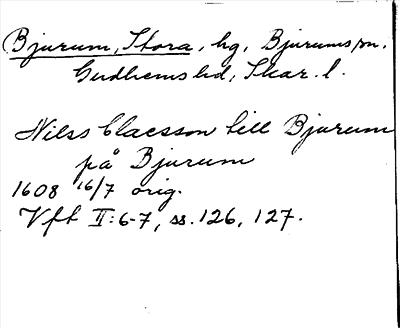 Bjurum, Stora, hg, Bjurums sn.
Gudhems hd, Skar. l.
Nilss Claesson till Bjurum
på Bjurum
1608 16/7 orig.
Vft II:6-7, ss. 126, 127.